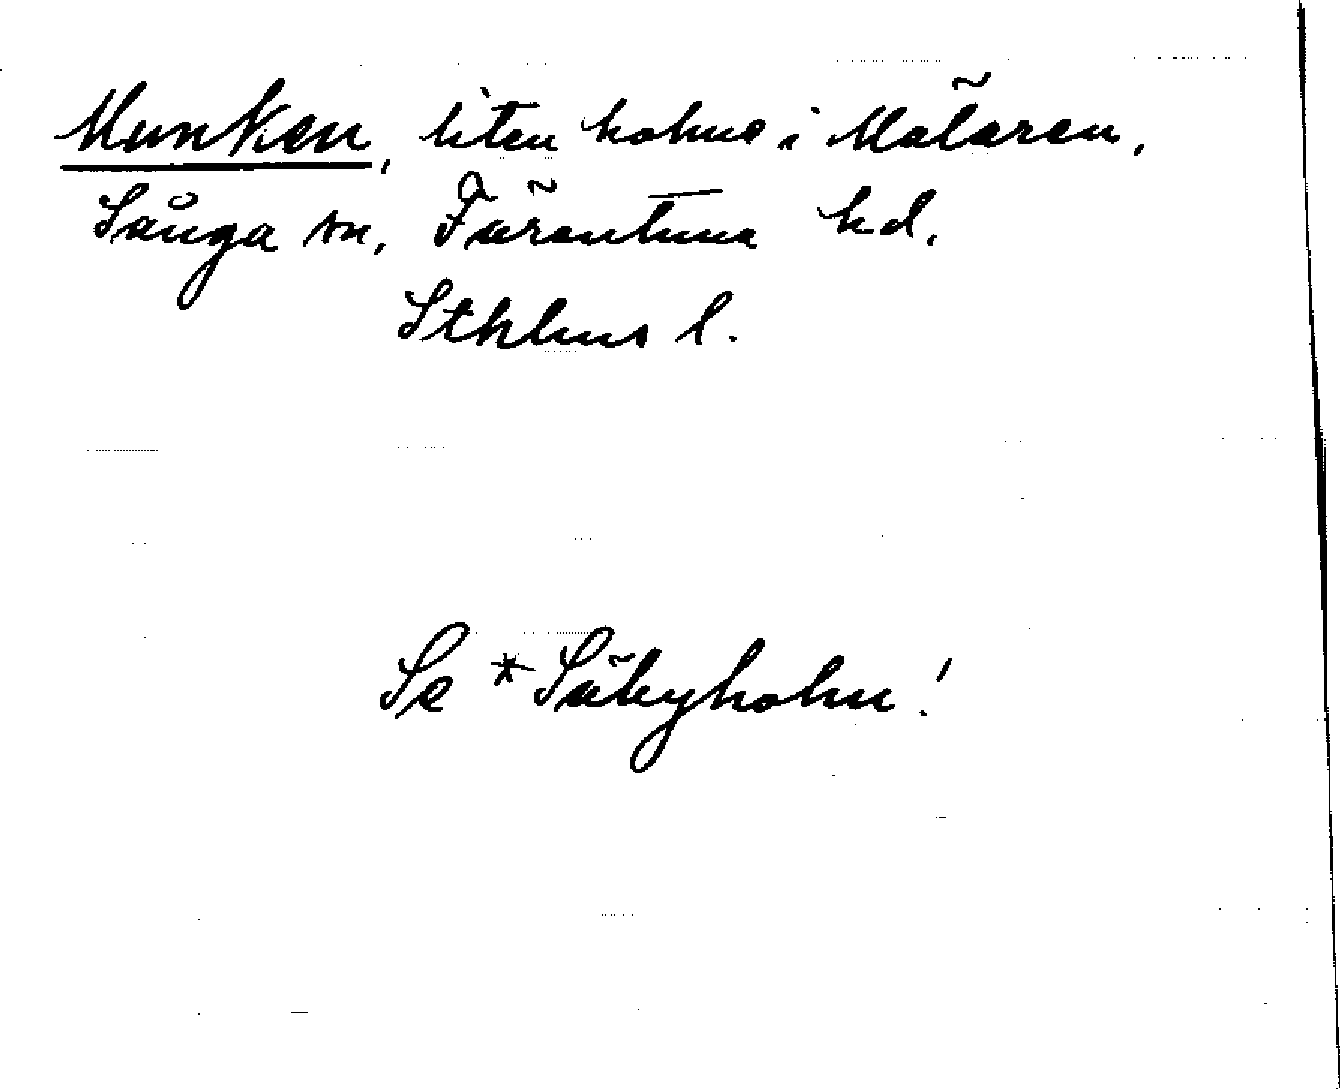 Munken, liten holme i Mälaren,
Sånga sn, Färentuna hd,
Sthlms l.
Se *Säbyholm!